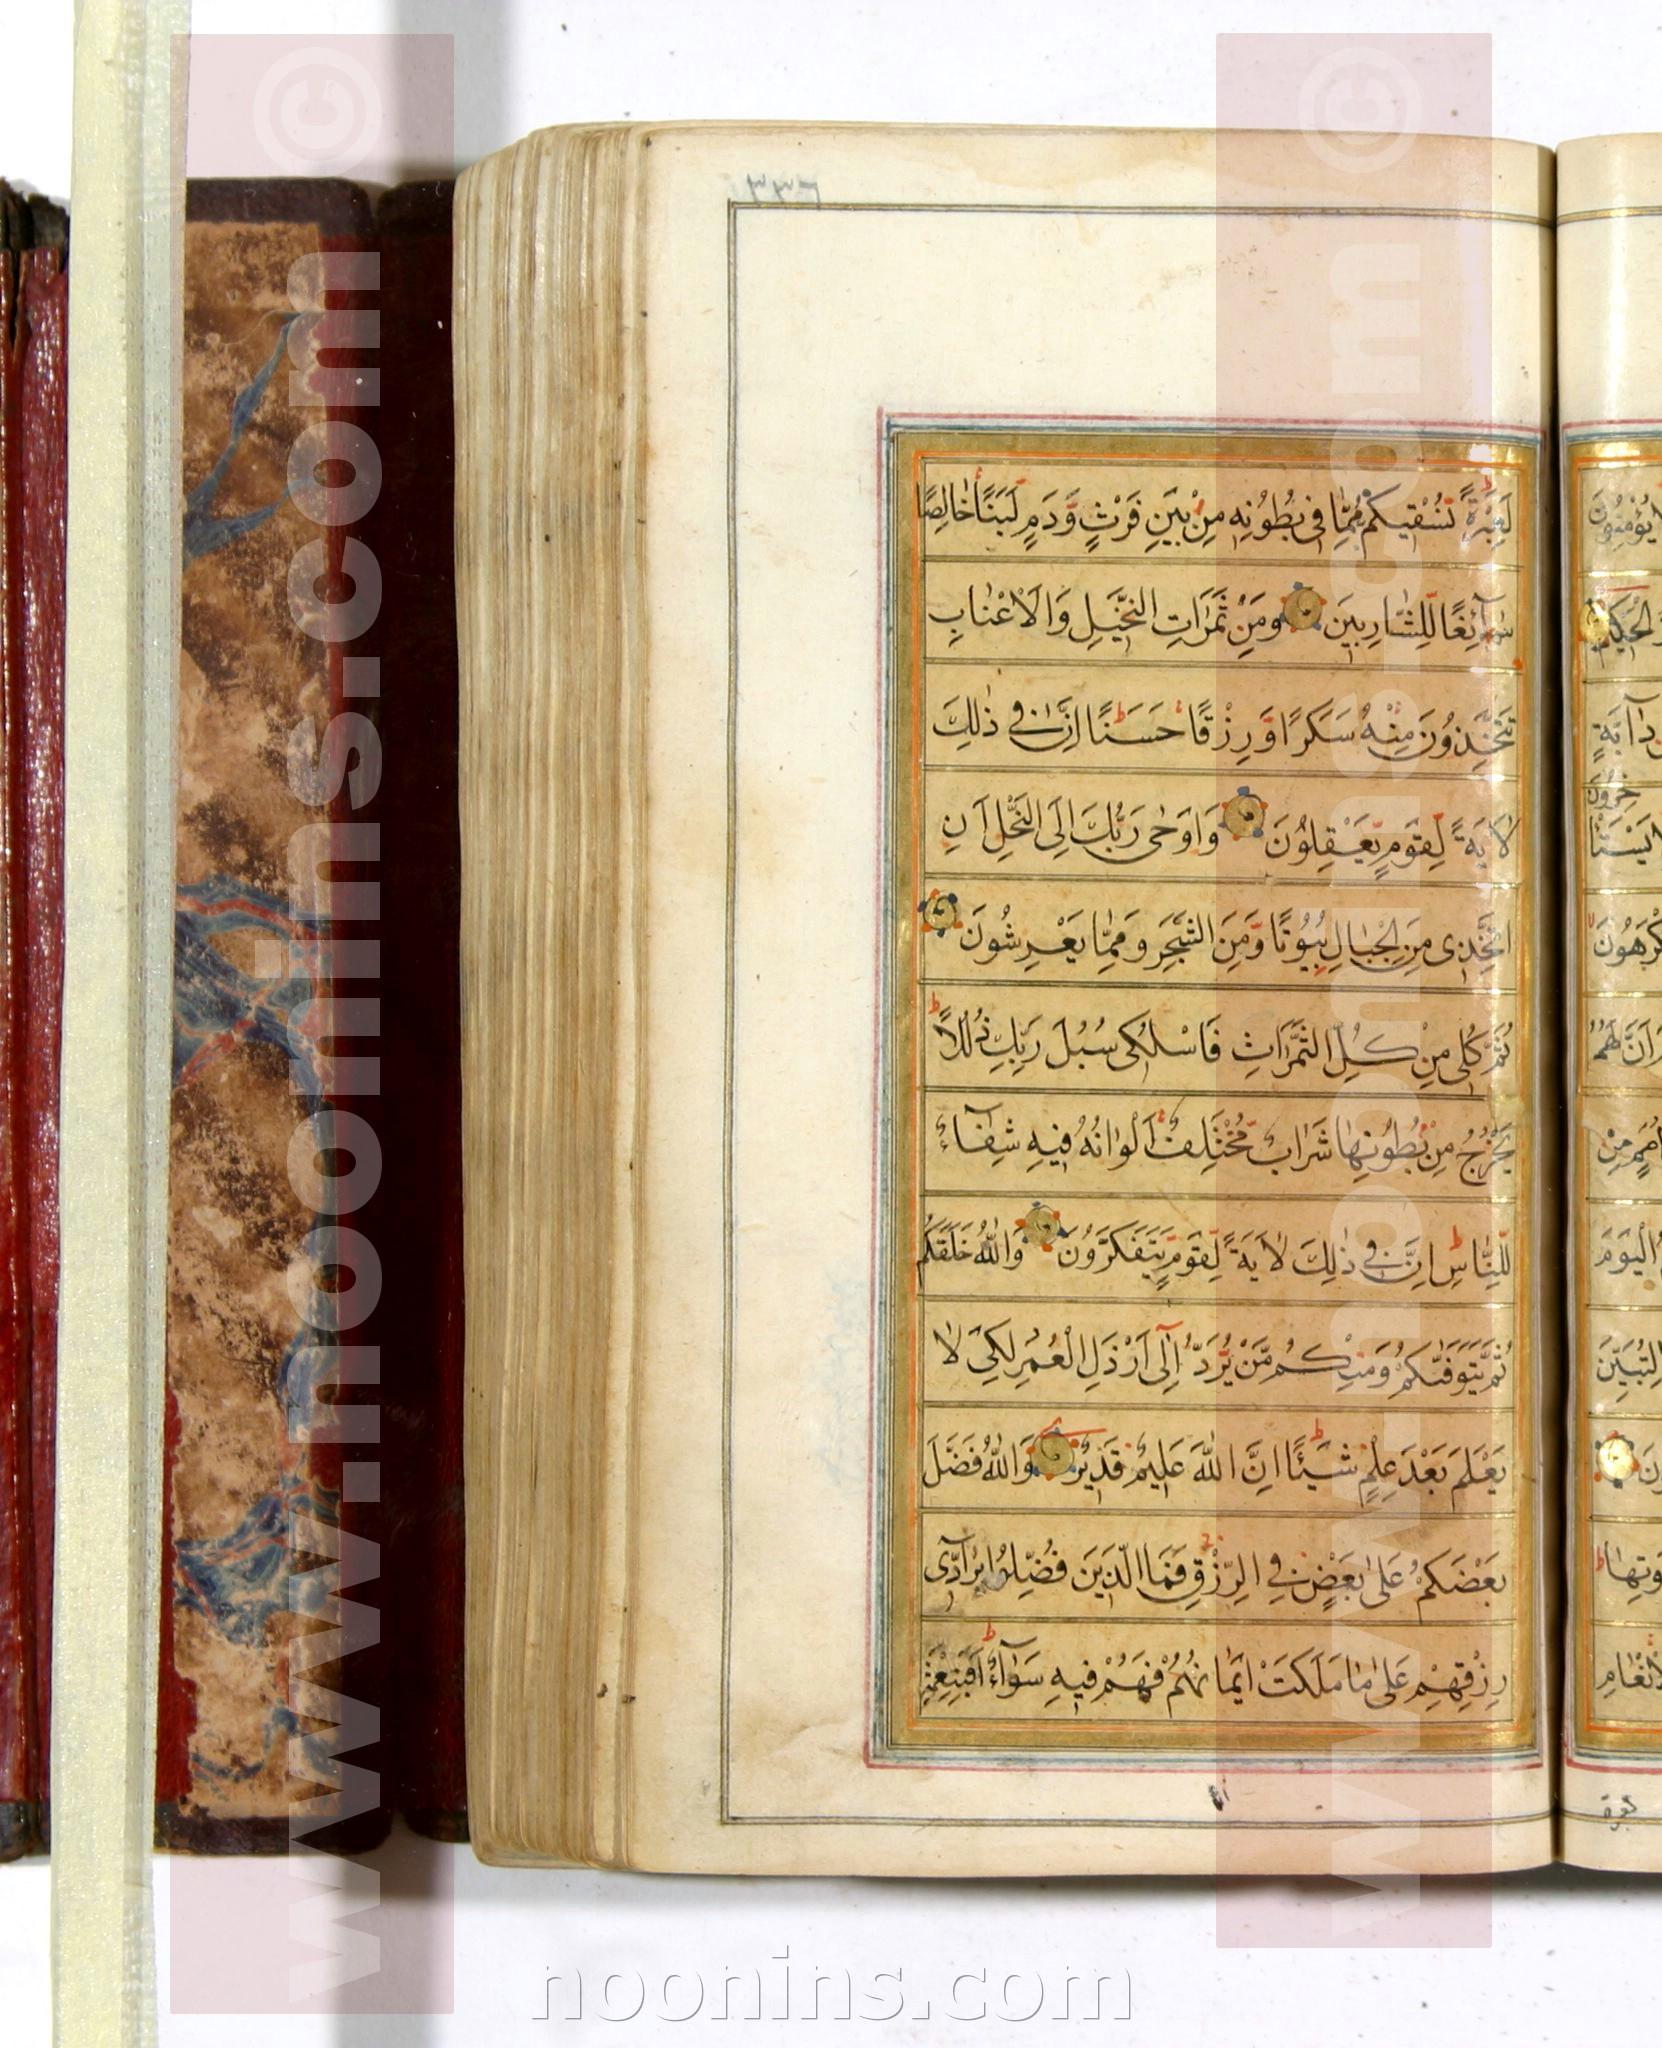 لَعِبْرَةً نُسْقِيكُمْ مِمَّا فِى بُطُونِهِ مِنْ بَيْنِ فَرْثٍ وَدَمٍ لَبَنًا خَالِصًا
سَآئِغًا لِلشَّارِبِينَ وَمِنْ ثَمَرَاتِ النَّخِيلِ وَالْاَعْنَابِ
تَتَّخِذُونَ مِنْهُ سَكَرًا وَرِزْقًا حَسَنًا اِنَّ فِى ذٰلِكَ
لَاٰيَةً لِقَوْمٍ يَعْقِلُونَ وَاَوْحٰى رَبُّكَ اِلَى النَّحْلِ اَنِ
اتَّخِذِى مِنَ الْجِبَالِ بُيُوتًا وَمِنَ الشَّجَرِ وَمِمَّا يَعْرِشُونَ
ثُمَّ كُلِى مِنْ كُلِّ الثَّمَرَاتِ فَاسْلُكِى سُبُلَ رَبِّكِ ذُلُلًا
يَخْرُجُ مِنْ بُطُونِهَا شَرَابٌ مُخْتَلِفٌ اَلْوَانُهُ فِيهِ شِفَآءٌ
لِلنَّاسِ اِنَّ فِى ذٰلِكَ لَاٰيَةً لِقَوْمٍ يَتَفَكَّرُونَ وَاللّٰهُ خَلَقَكُمْ
ثُمَّ يَتَوَفّٰيكُمْ وَمِنْكُمْ مَنْ يُرَدُّ اِلٰى اَرْذَلِ الْعُمُرِ لِكَىْ لَا
يَعْلَمَ بَعْدَ عِلْمٍ شَيْئًا اِنَّ اللّٰهَ عَلِيمٌ قَدِيرٌ وَاللّٰهُ فَضَّلَ
بَعْضَكُمْ عَلٰى بَعْضٍ فِى الرِّزْقِ فَمَا الَّذِينَ فُضِّلُوا بِرَآدِّى
رِزْقِهِمْ عَلٰى مَا مَلَكَتْ اَيْمَانُهُمْ فَهُمْ فِيهِ سَوَآءٌ اَفَبِنِعْمَةِ
يُؤْمِنُونَ
الْحَكِيمُ
دَآبَّةٍ
الْيَوْمَ
لِتُبَيِّنَ
لعبرة
www.noonins.com ©
www.noonins.com ©
noonins.com